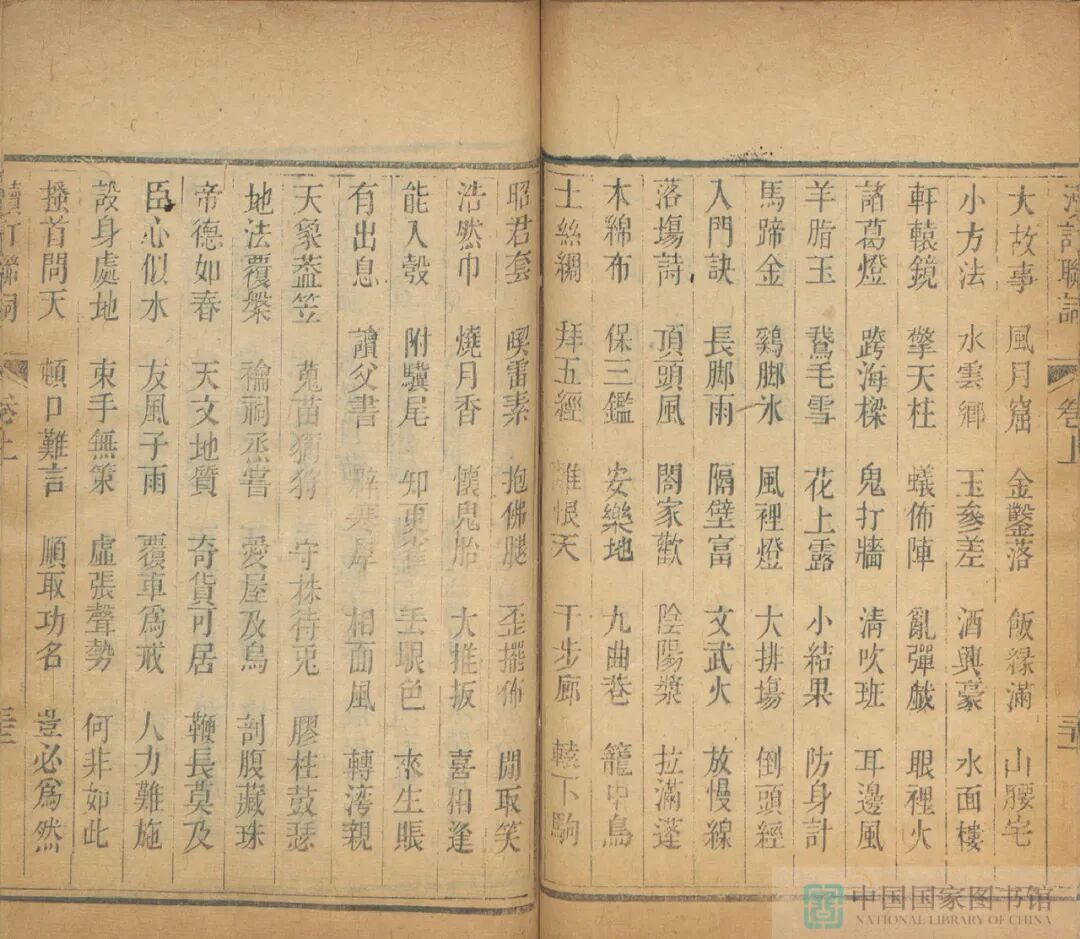 聯詞 卷上
大故事 風月窟 金鑿落 飯緣滿 山腰宅
小方法 水雲鄉 玉參差 酒興豪 水面樓
軒轅鏡 擎天柱 蟻佈陣 亂彈戲 眼裡火
諸葛燈 跨海樑 鬼打牆 清吹班 耳邊風
羊脂玉 鵞毛雪 花上露 小結果 防身計
馬蹄金 鷄脚氷 風裡燈 大排塲 倒頭經
入門訣 長脚雨 隔壁富 文武火 放慢線
落塲詩 頂頭風 閤家歡 陰陽漿 拉滿蓬
木綿布 保三鑑 安樂地 九曲巷 籠中鳥
土絲綢 拜五經 離恨天 千步廊 轅下駒
昭君套 喫雷素 抱佛腿 歪擺佈 閒取笑
浩然巾 燒月香 懷鬼胎 大推扳 喜相逢
能入彀 附驥尾 知 丟眼色 來生賬
有出息 讀父書 相面風 轉灣親
天象葢笠 蒐苗獮狩 守株待兎 膠柱鼓瑟
地法覆槃 禴祠烝嘗 愛屋及烏 剖腹藏珠
帝德如春 天文地質 奇貨可居 鞭長莫及
臣心似水 友風子雨 覆車爲戒 人力難施
設身處地 束手無策 虛張聲勢 何非如此
搔首問天 頓口難言 順取功名 豈必爲然
卷上
中国国家图书馆
NATIONAL LIBRARY OF CHINA